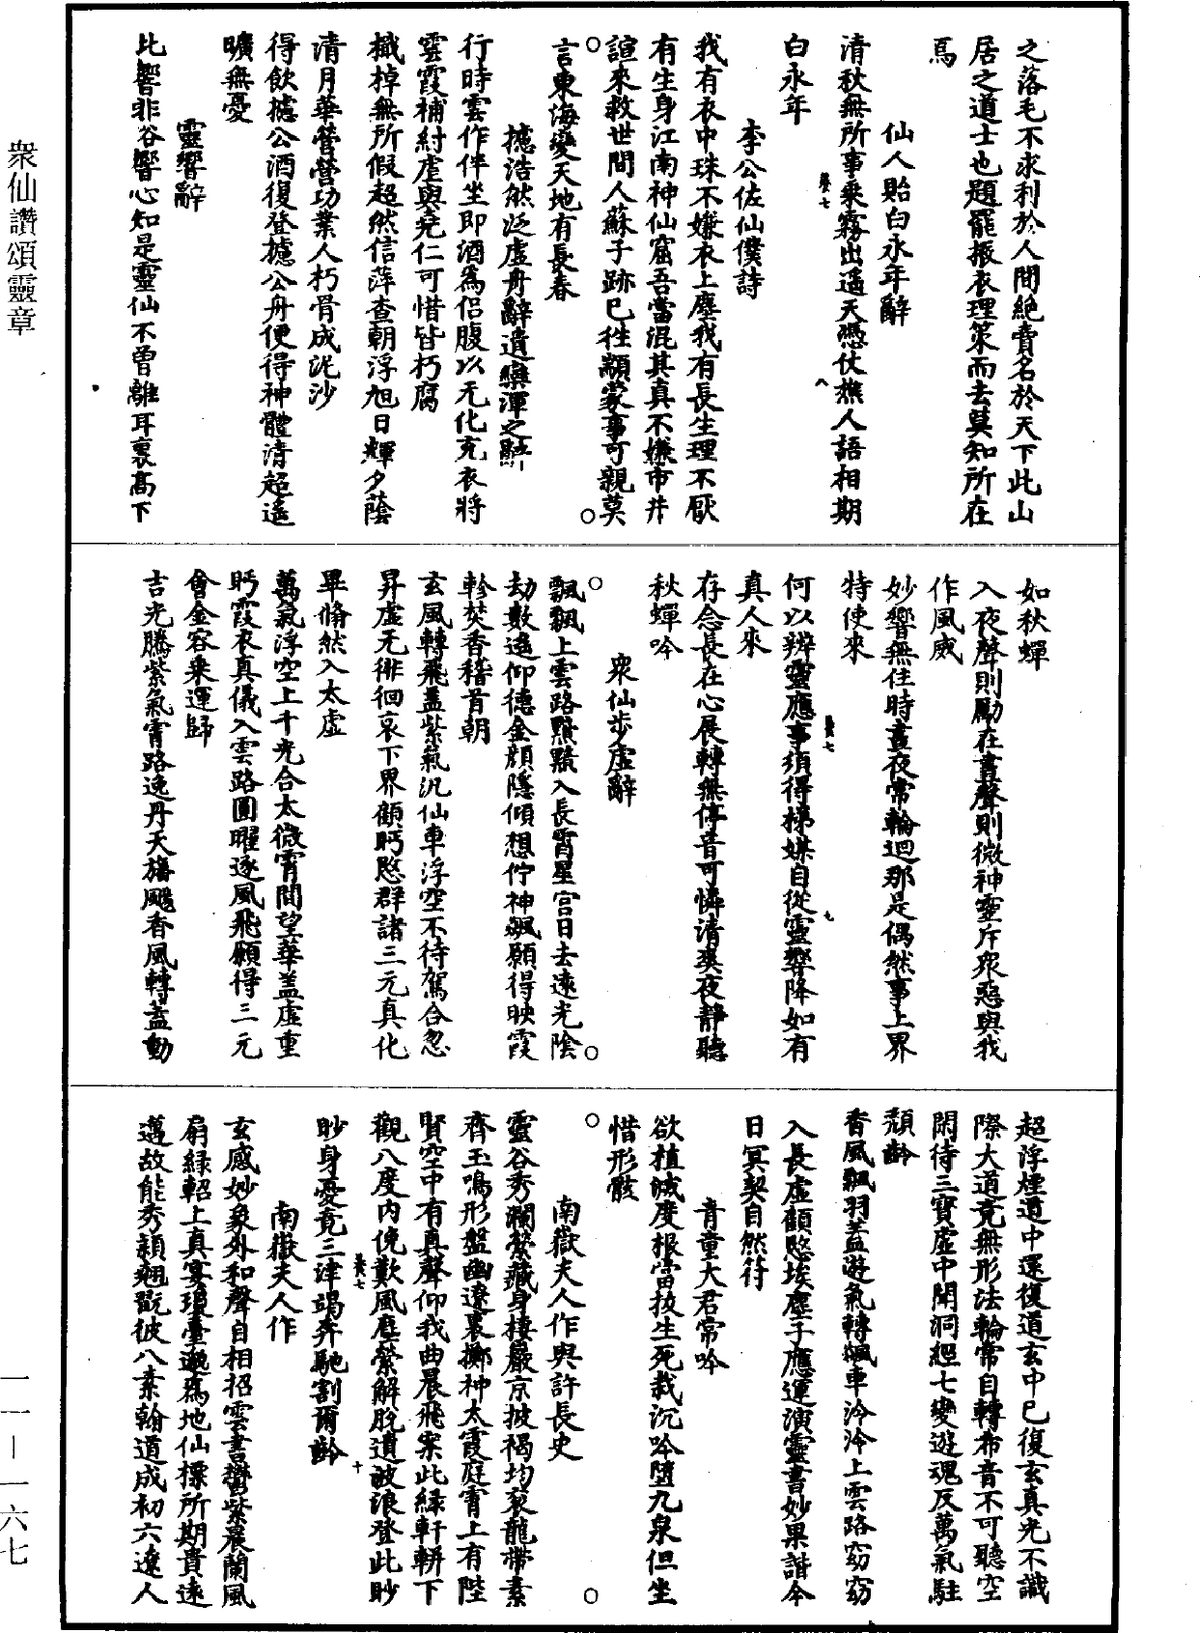 之落毛不求利於人間絕賣名於天下此山
居之道士也題罷振衣理策而去莫知所在
焉
仙人貽白永年辭
清秋無所事乘霧出遙天憑仗樵人語相期
白永年
李公佐仙僕詩
我有衣中珠不嫌衣上塵我有長生理不厭
有生身江南神仙窟吾當混其真不嫌市井
諠來救世間人蘇子跡已往顓蒙事可親莫
言東海變天地有長春
攄浩然泛虛舟辭遺欒渾之辭
行時雲作伴坐即酒為侶腹以无化充衣將
雲霞補紂虐與堯仁可惜皆朽腐
檝棹無所假超然信萍查朝浮旭日輝夕蔭
清月華營營功業人朽骨成泥沙
得飲攄公酒復登攄公舟便得神體清超遙
曠無憂
靈響辭
此響非谷響心知是靈仙不曾離耳裏高下
如秋蟬
入夜聲則勵在晝聲則微神靈斥眾惡與我
作風威
妙響無住時晝夜常輪迴那是偶然事上界
特使來
何以辨靈應事須得梯媒自從靈響降如有
真人來
存念長在心展轉無停音可憐清爽夜靜聽
秋蟬吟
眾仙步虛辭
飄飄上雲路黯黯入長霄星宮日去遠光陰
劫數遙仰德金顏隱傾想佇神飆願得映霞
軫焚香稽首朝
玄風轉飛蓋紫氣汎仙車浮空不待駕合忽
昇虛无徘徊哀下界顧眄愍群諸三元真化
畢翛然入太虛
萬氣浮空上千光合太微霄間望華盖虛重
眄霞衣真儀入雲路圓曜逐風飛願得三元
會金容乘運歸
吉光騰紫氣霄路逸丹天旛颺香風轉蓋動
超浮煙道中還復道玄中已復玄真光不識
際大道竟無形法輪常自轉希音不可聽空
閑待三寶虛中聞洞經七變遊魂反萬氣駐
頹齡
香風飄羽盖遊氣轉飆車泠泠上雲路窈窈
入長虛顧愍埃塵子應運演靈書妙果諧今
日冥契自然符
青童大君常吟
欲植滅度根當拔生死栽沉吟墮九泉但坐
惜形骸
南嶽夫人作與許長史
靈谷秀瀾縈藏身棲巖京披褐均袞龍帶素
齊玉鳴形盤幽遼裏擲神太霞庭霄上有陛
賢空中有真聲仰我曲晨飛案此綠軒軿下
觀八度內俛歎風塵縈解脫遺波浪登此眇
眇身憂竟三津竭奔馳割爾齡
南嶽夫人作
玄感妙象外和聲自相招雲書鬱紫晨蘭風
扇綠軺上真宴瓊臺邈為地仙摽所期貴遠
邁故能秀穎翹翫彼八素翰道成初六遼人
衆仙讚頌靈章
一一—一六七